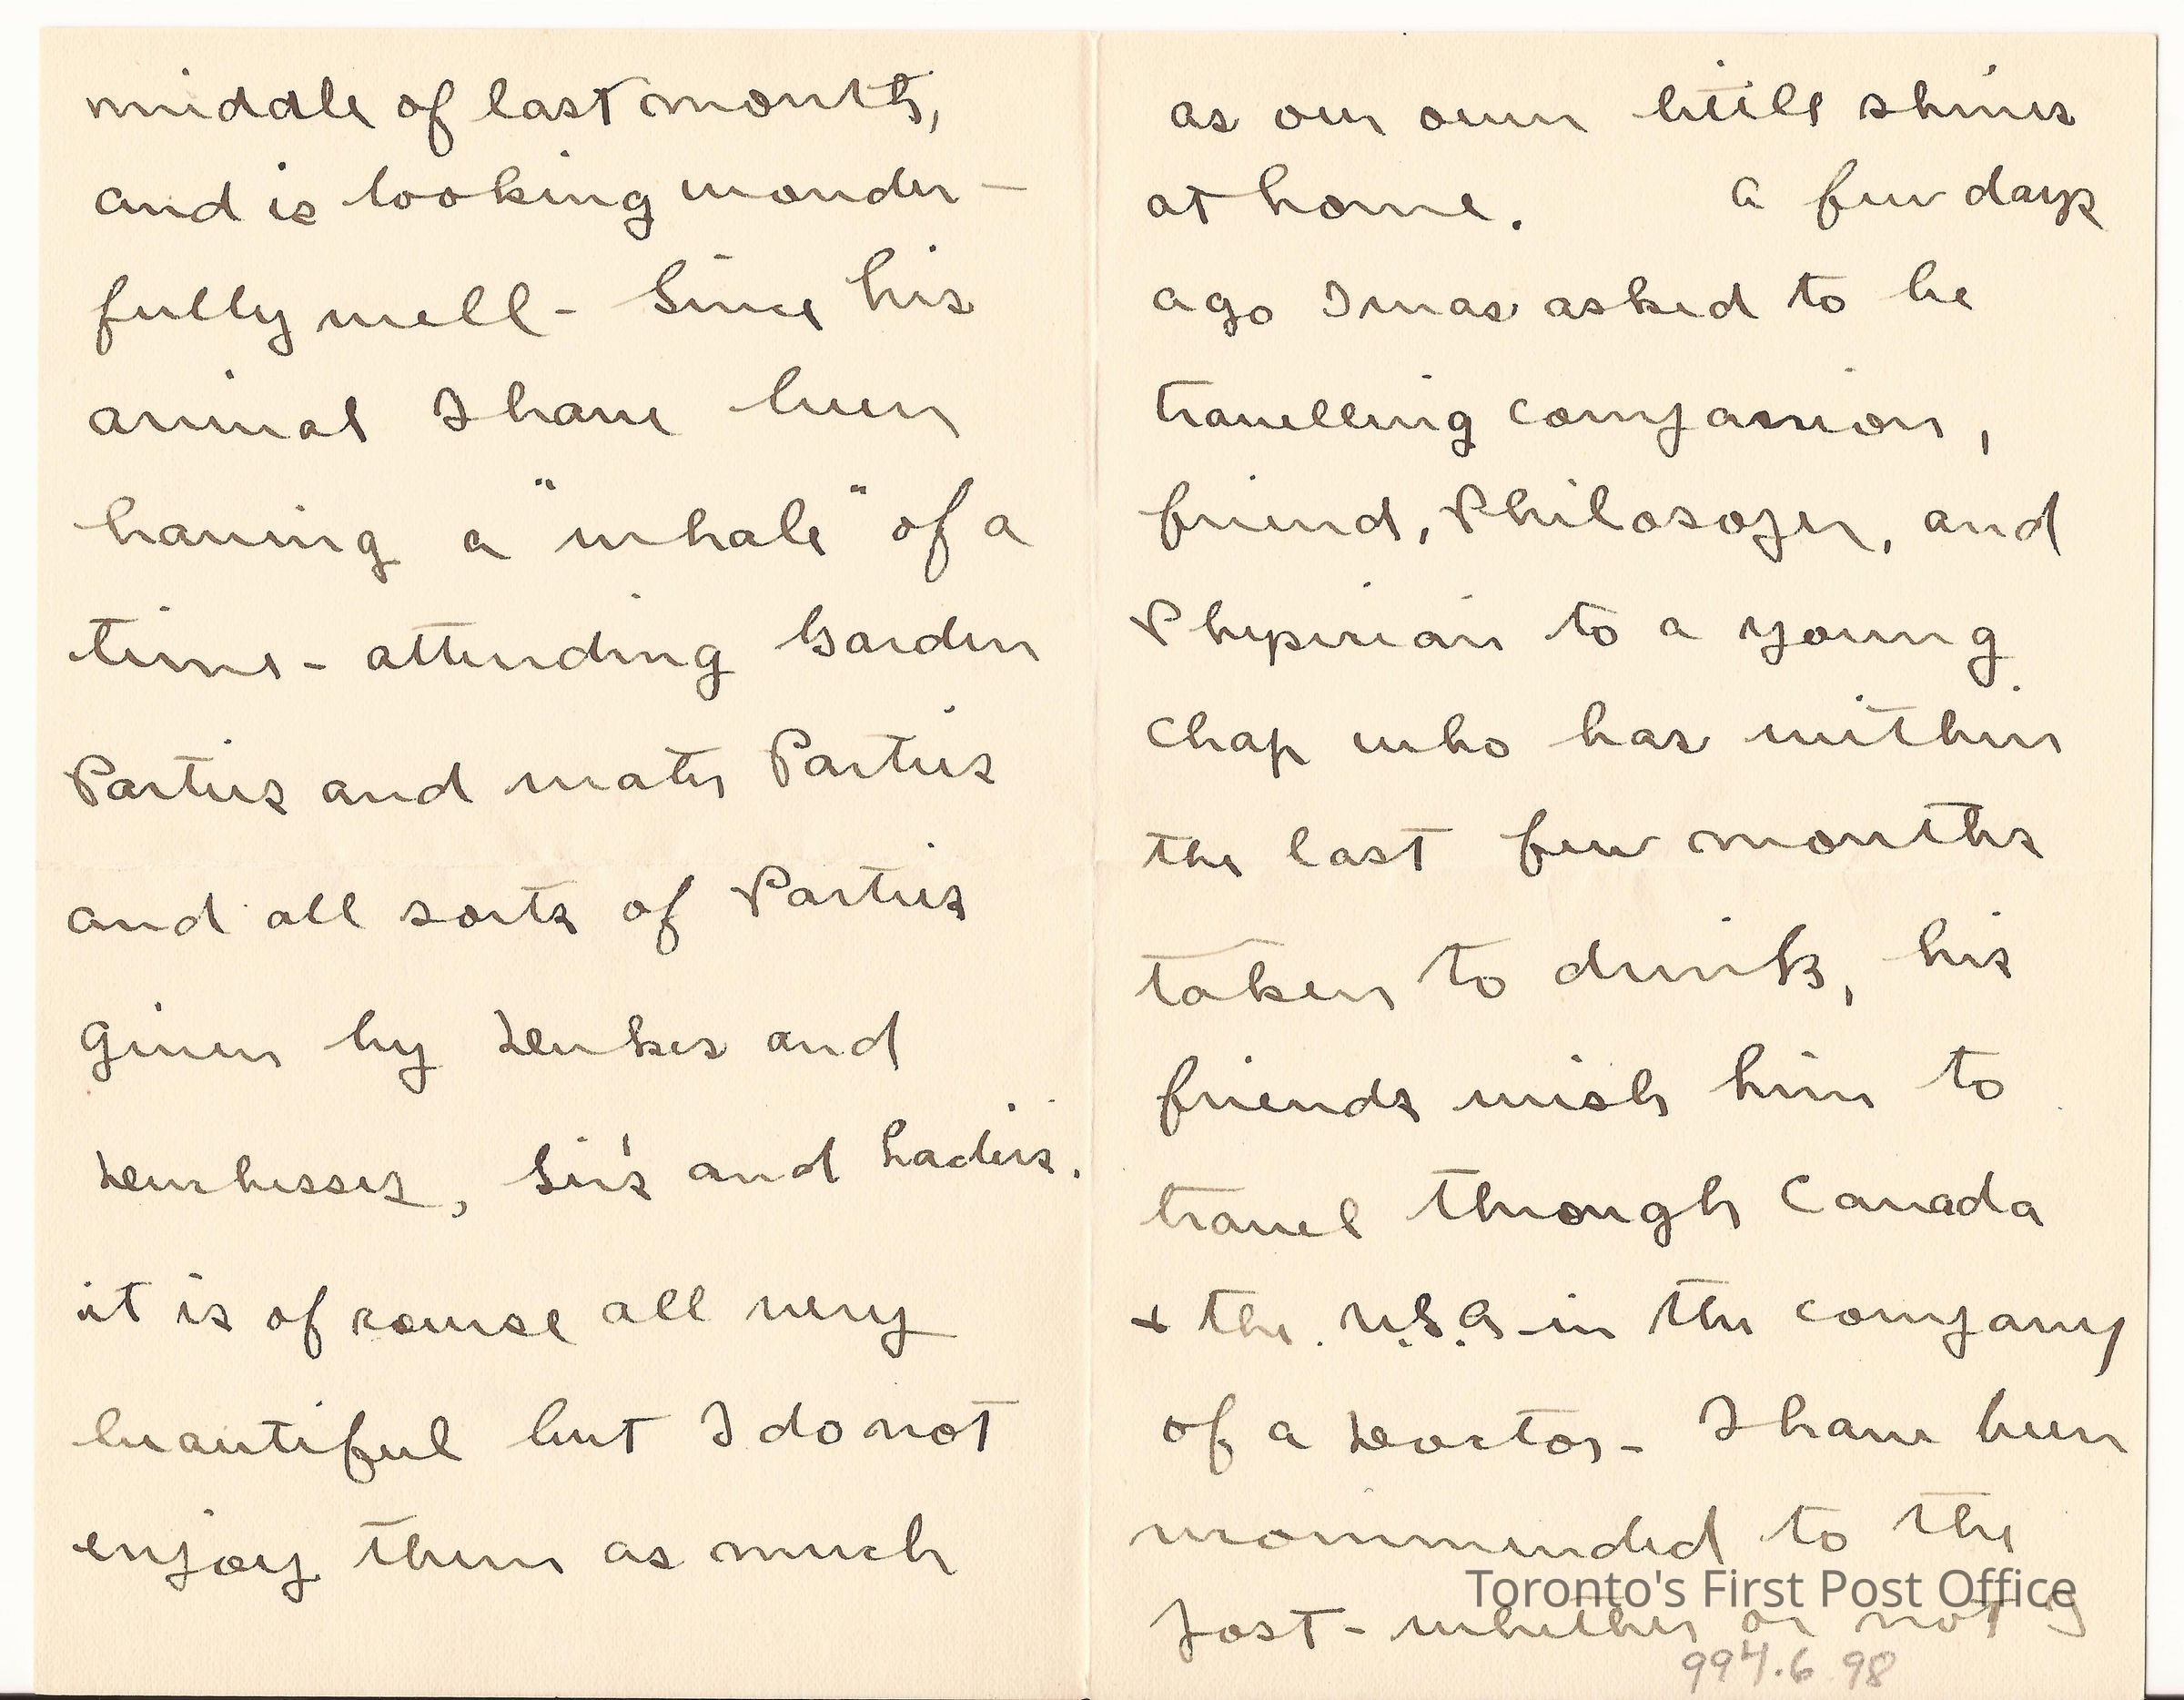 middle of last month,
and is looking wonder-
fully well - Since his
arrival I have been
having a "whale" of a
time - attending Garden
Parties and water Parties
and all sorts of Parties
given by Deukes and
Deuchesses, Sir's and Ladies.
it is of course all very
beautiful but I do not
enjoy them as much
as our own little shines
at home. A few days
ago I was asked to be
travelling companion,
friend, Philosoper, and
Phypician to a young
chap who has within
the last few months
taken to drink, his
friends wish him to
travel through Canada
+ the U.S.A - in the company
of a Doctor - I have been
recommended to the
post - whether or not I
Toronto's First Post Office
994.6.98